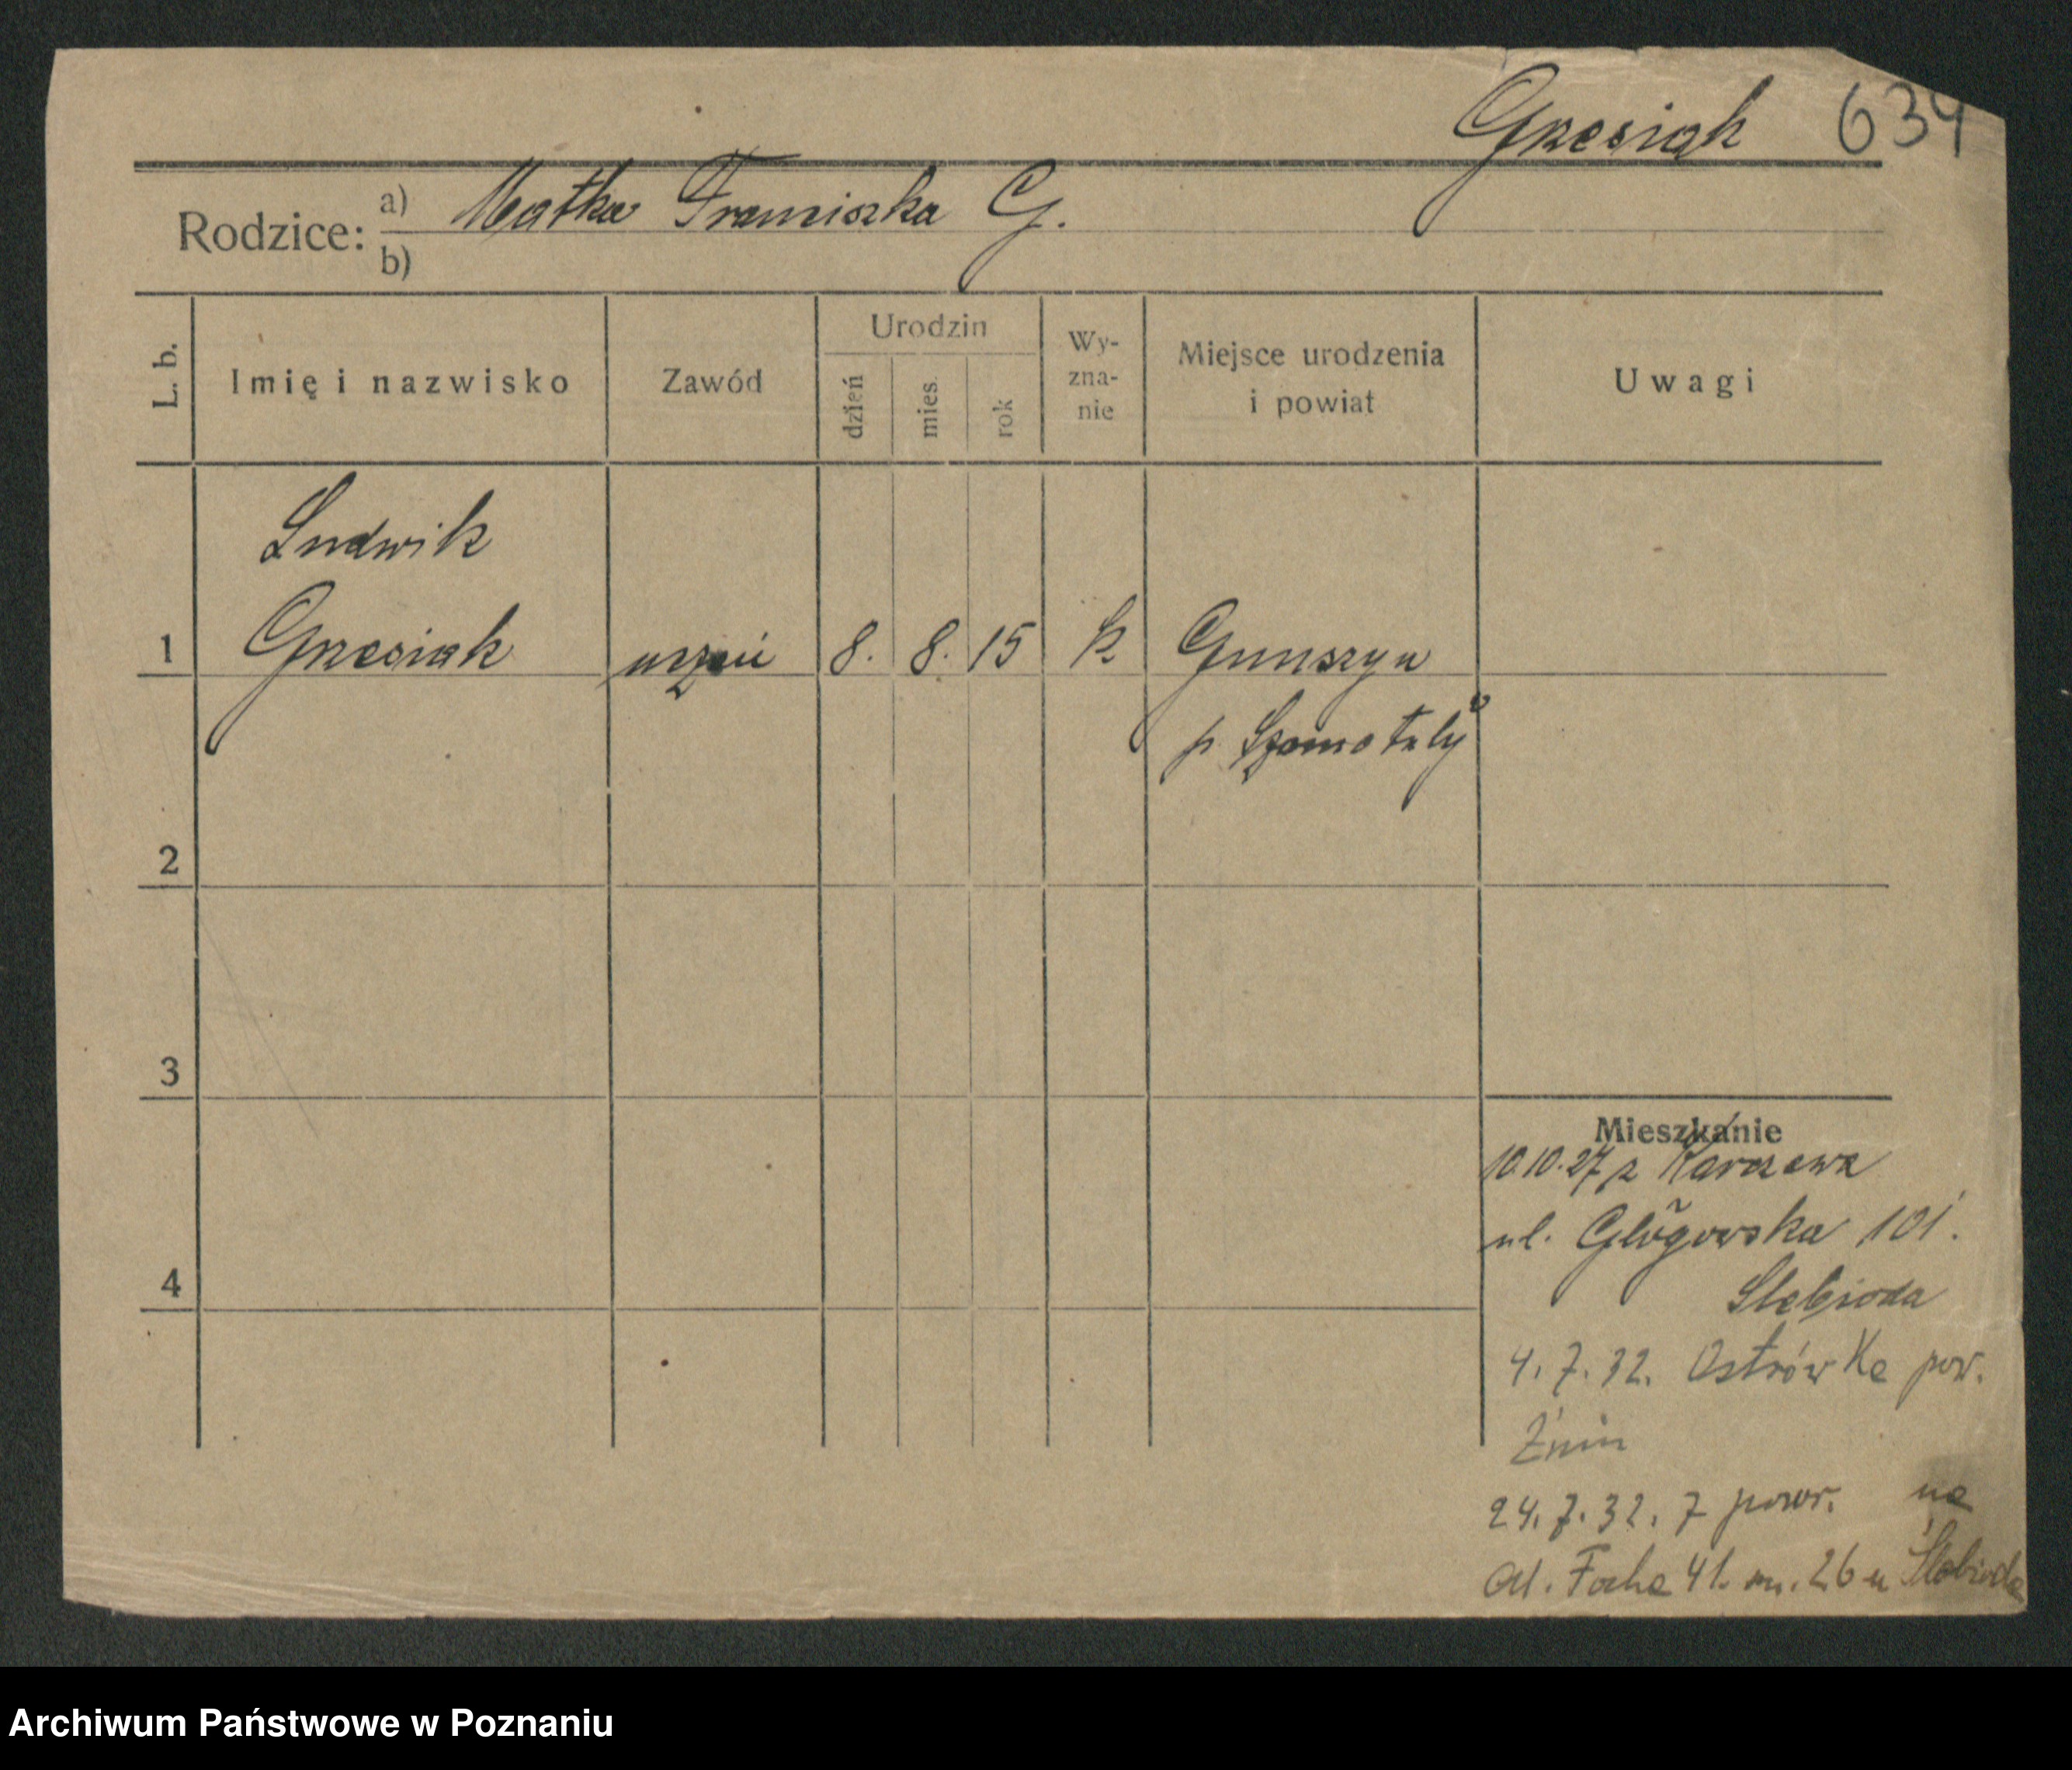 Grzesiak 634
Rodzice: a) Matka Franciszka G.
b)
L. b. Imię i nazwisko Zawód Urodzin dzień mies. rok Wy-zna-nie Miejsce urodzenia i powiat Uwagi
Ludwik
1 Grzesiak uczeń 8. 8. 15 k.
p. Szamotuły
2
3
4
Mieszkanie
10.10.27 z
ul. Głogowska 101.
Ślebioda
4. 7. 32. Ostrówke pow.
Żnin
24. 7. 32. z powr. na
Al. Focha 41. m. 26 u Ślebioda
Archiwum Państwowe w Poznaniu